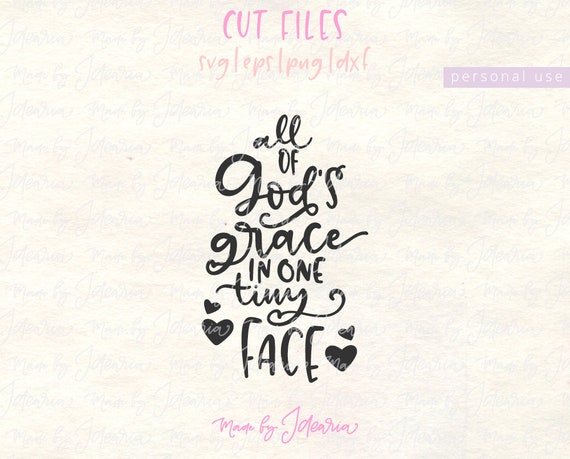 CUT FILES
svg|eps|png|dxf
personal use
all
OF
God's
grace
IN ONE
tiny
FACE
Made by Idearia